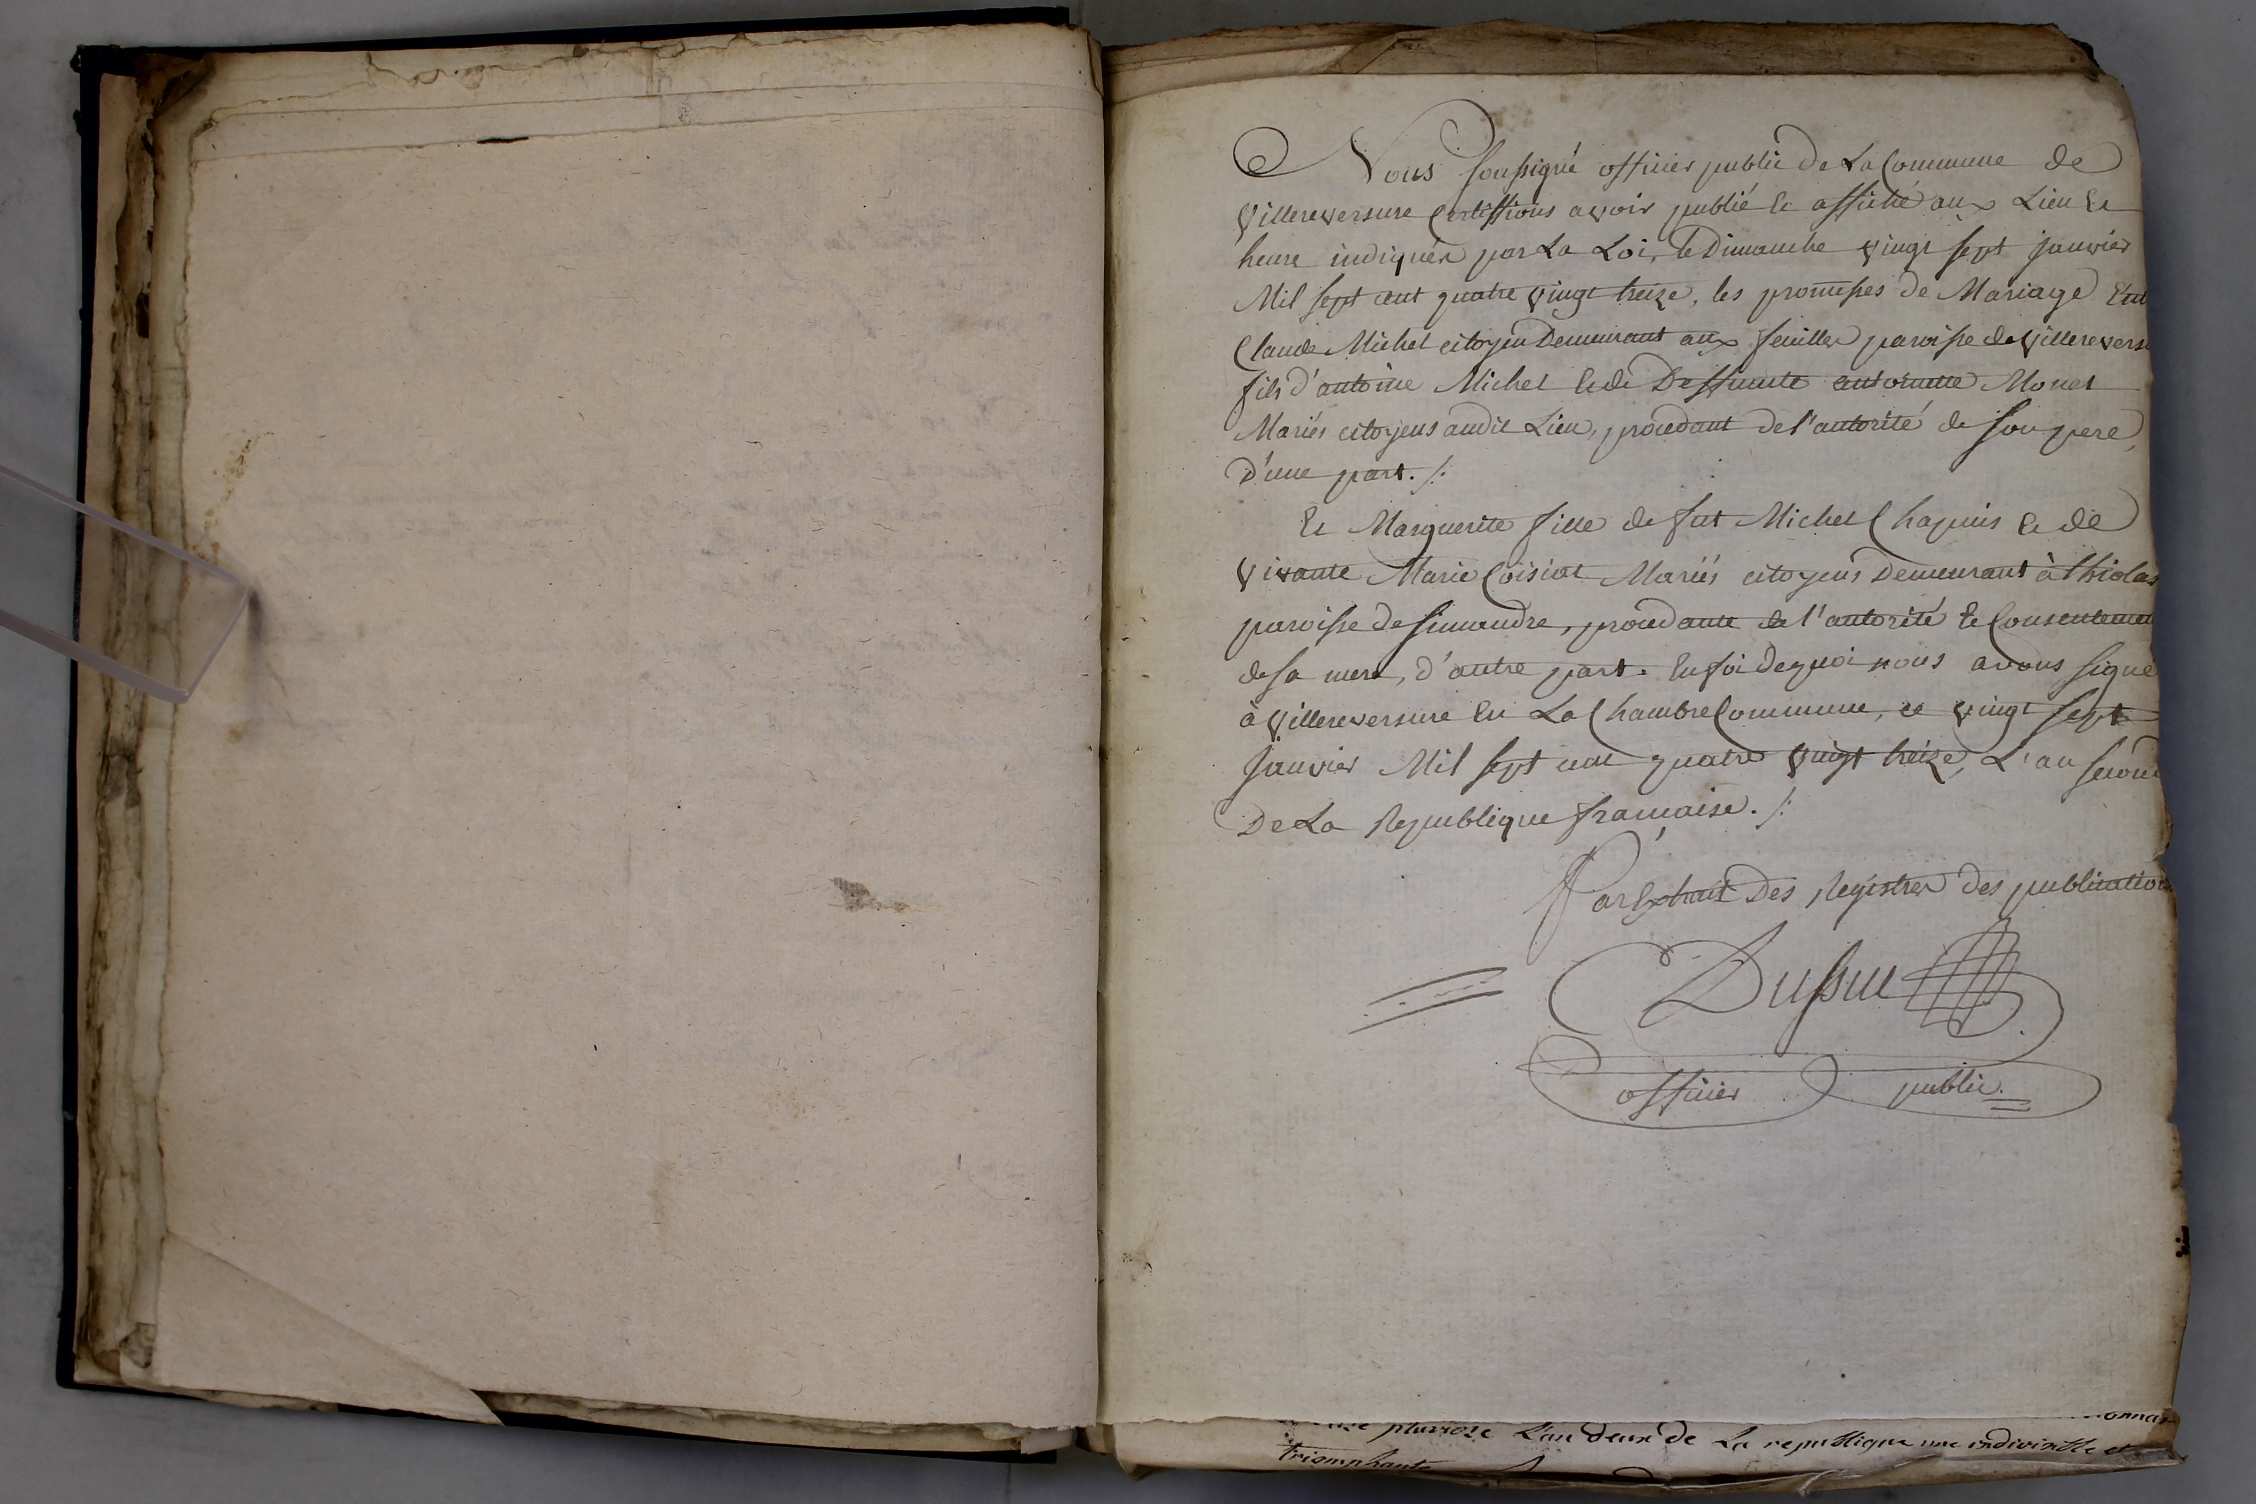 Nous soussigné officier public de La Commune de
Villereversure Certiffions avoir publié Et affiché aux Lieu Et
heure indiquées par La Loi, le Dimanche vingt sept janvier
Mil sept cent quatre vingt treize, les promesses de Mariage Ent
Claude Michel citoyen Demeurant aux feuilles paroisse de Villerevers
fils d'antoine Michel Et de Deffunte antoinette Monet
Mariés citoyens audit Lieu, procedant de l'autorité de son pere,
D'une part. /:
Et Marguerite fille de fut Michel Chapuis Et de
vivante Marie Coisiat Mariés citoyens Demeurant à
paroisse de simandre, procedante de l'autorité Et Consentemen
de sa mere, d'autre part. En foi de quoi nous avons signé
à Villereversure En La Chambre Commune, ce vingt sept
Janvier Mil sept cent quatre vingt treize, L'an second
De La Republique française. /:
Par Extrait Des Registres des publication
officier public.
pluviose L'an deux de La republique une indivisible et
triomphante